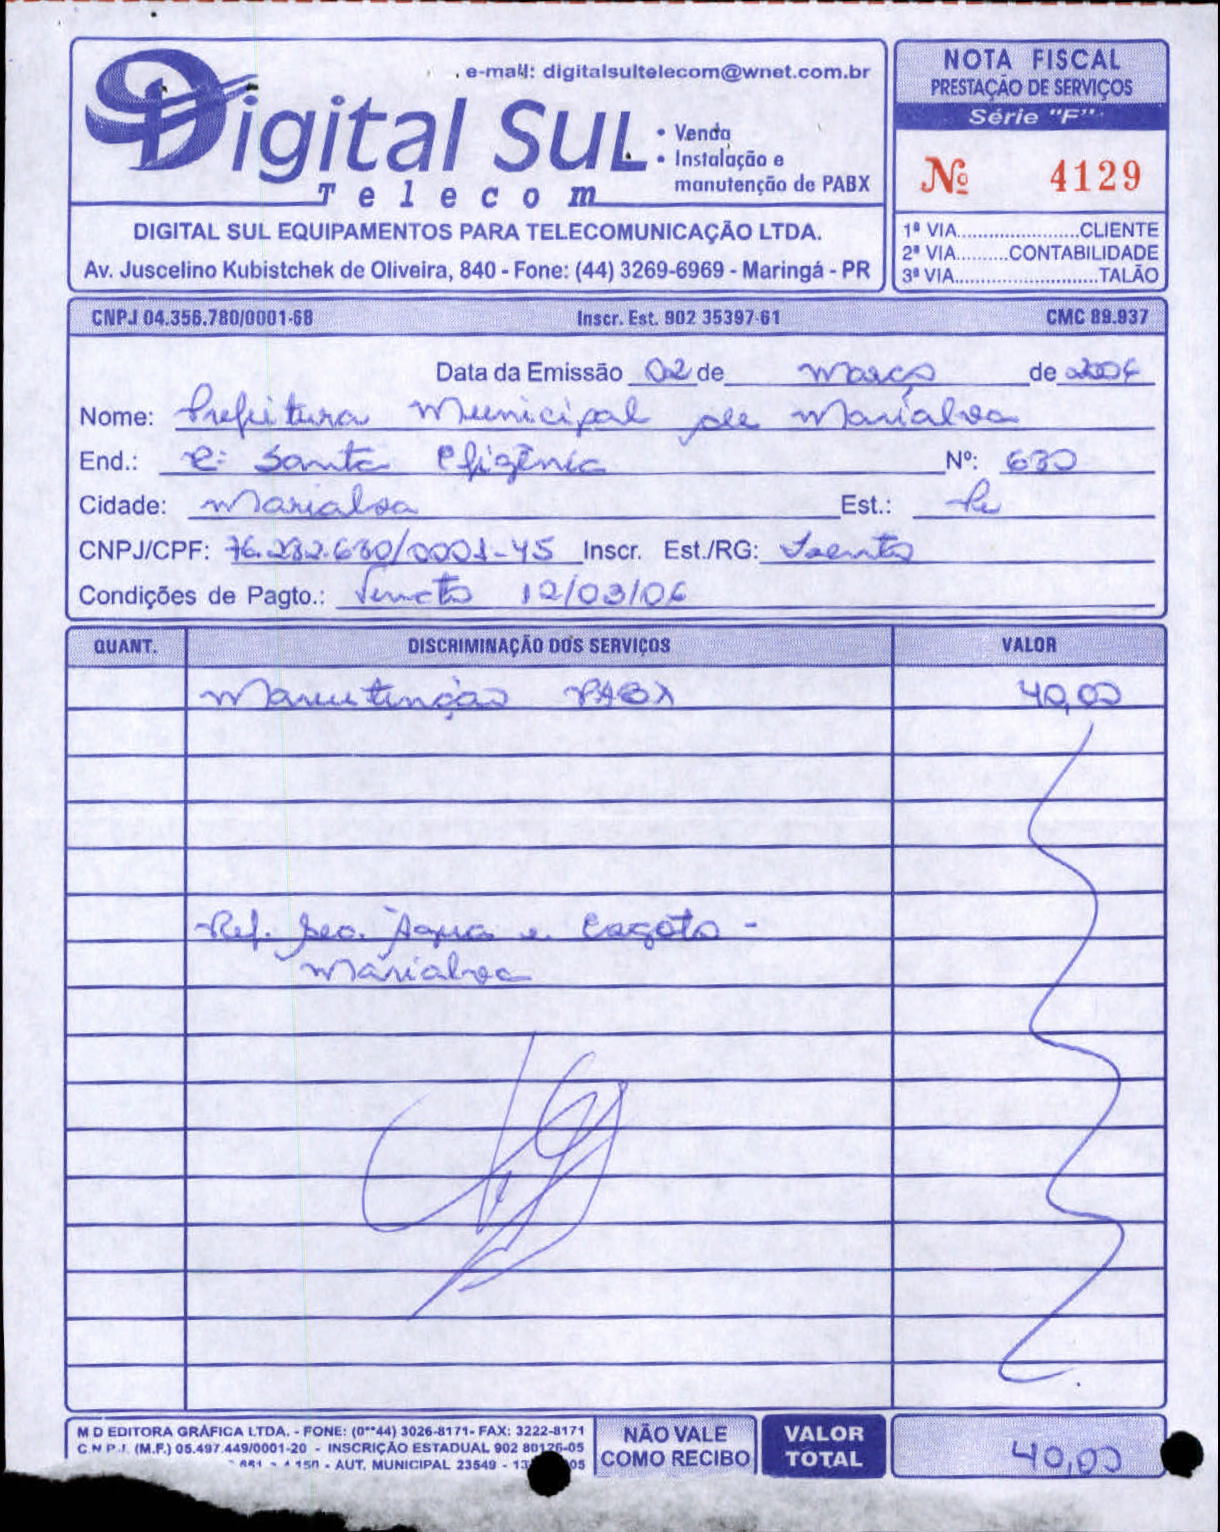 e-mail: digitalsultelecom@wnet.com.br
Digital Sul
Telecom
• Venda
• Instalação e
manutenção de PABX
DIGITAL SUL EQUIPAMENTOS PARA TELECOMUNICAÇÃO LTDA.
Av. Juscelino Kubistchek de Oliveira, 840 - Fone: (44) 3269-6969 - Maringá - PR
NOTA FISCAL
PRESTAÇÃO DE SERVIÇOS
Série "F"
Nº 4129
1ª VIA......................CLIENTE
2ª VIA.........CONTABILIDADE
3ª VIA..........................TALÃO
CNPJ 04.356.780/0001-68 Inscr. Est. 902 35397-61 CMC 89.937
Data da Emissão 02 de Março de 2006
Nome: Prefeitura Municipal de Marialva
End.: R: Santa Efigênia Nº: 680
Cidade: Marialva Est.: Pr
CNPJ/CPF: 76.282.680/0001-45 Inscr. Est./RG: Isento
Condições de Pagto.: Vencto 12/03/06
QUANT. DISCRIMINAÇÃO DOS SERVIÇOS VALOR
Manutenção PABX 40,00
Ref. Sec. Água e Esgoto -
Marialva
M D EDITORA GRÁFICA LTDA. - FONE: (0**44) 3026-8171- FAX: 3222-8171
C N P J. (M.F.) 05.497.449/0001-20 - INSCRIÇÃO ESTADUAL 902 80176-05
- AUT. MUNICIPAL 23549 -
NÃO VALE
COMO RECIBO
VALOR
TOTAL
40,00